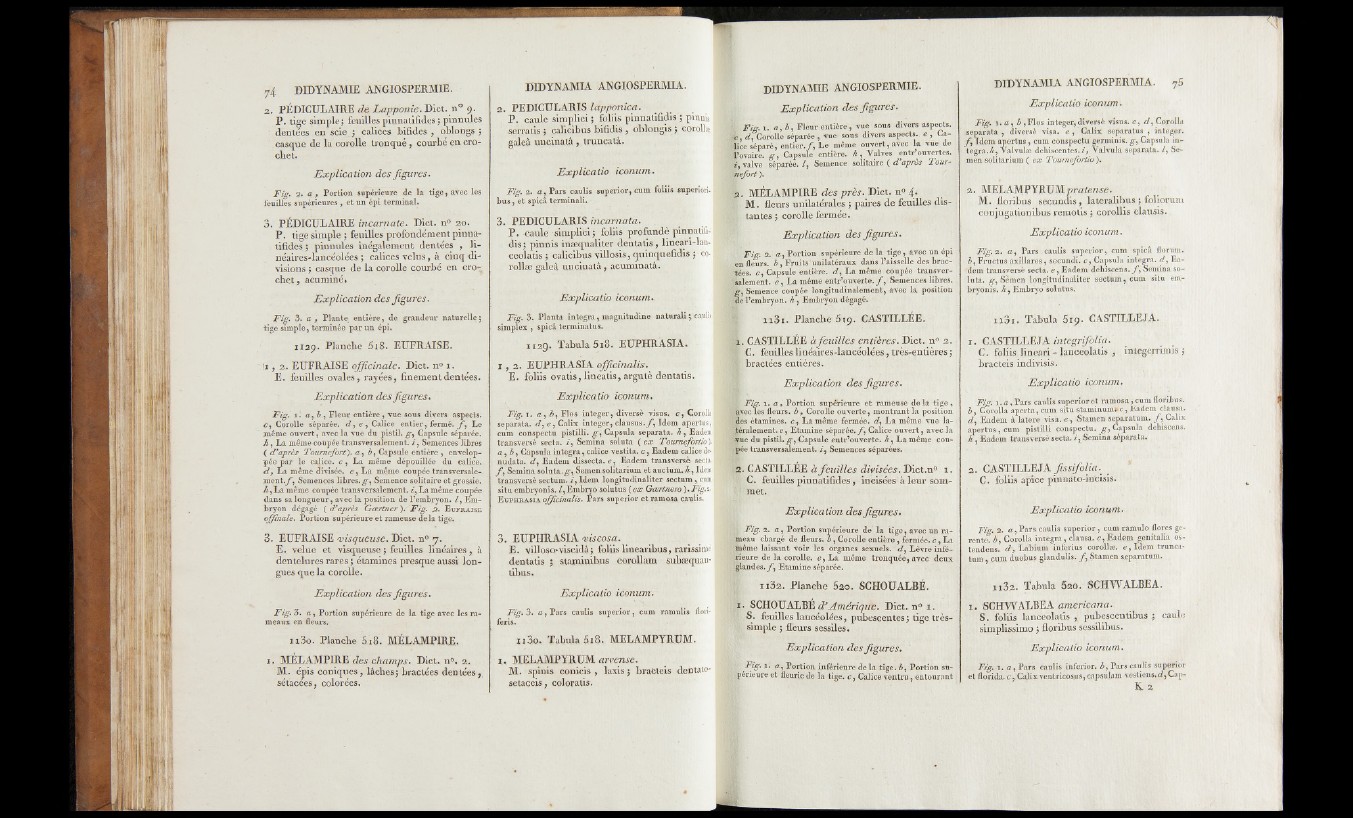 74 DIDYNAMIE ANGIOSPERMIE.
2. PÉDICULAIRE de Lapponie. Dict. n° 9.
P. tige simple; feuilles pinnatifides; pinnules
dentées en scie ; calices bifides , oblongs ;
casque de la corolle tronqué , courbé en cro-
chet.
Explication des figures.
Fig. 2. a , Portion supérieure de la tige, avec les
feuilles supérieures , et un épi terminal.
3. PÉDICULAIRE incarnate. Dict. n° 20.
P. tige simple ; feuilles profondément pinna-
tifides ; pinnules inégalement dentées , li-
néaires-lancéolées ; calices velus , à cinq di-
visions ; casque de la corolle courbé en cro-
chet, acuminé.
Explication des figures.
Fig. 3. a , Plante entière, de grandeur naturelle;
tige simple, terminée par un épi.
1129. Planche 518. EUFRAISE.
1 , 2. EUFRAISE officinale. Dict. n° 1.
E. feuilles ovales, rayées, finement dentées.
Explication des figures.
Fig. 1. a, b , Fleur entière , vue sous divers aspects.
c, Corolle séparée. d, e , Calice entier, fermé. f, Le
même ouvert, avec la vue du pistil. g, Capsule séparée.
h , La même coupée transversalement. i , Semences libres
( d'après Tournefort ). a, b, Capsule entière , envelop-
pée par le calice. c, La même dépouillée du calice.
d, La même divisée. e, La même coupée transversale-
ment. f, Semences libres. g, Semence solitaire et grossie.
h, La même coupée transversalement. i, La même coupée
dans sa longueur, avec la position de l'embryon. l, Em-
bryon dégagé ( d'après Gærtner ). Fig. 2. EUFRAISE
officinale. Portion supérieure et rameuse de la tige.
3. EUFRAISE visqueuse. Dict. n° 7.
E. velue et visqueuse ; feuilles linéaires , à
dentelures rares ; étamines presque aussi lon-
gues que la corolle.
Explication des figures.
Fig. 3. a, Portion supérieure de la tige avec les ra-
meaux en fleurs.
1130. Planche 518. MÉLAMPIRE.
1. MÉLAMPIRE des champs. Dict. n°. 2.
M. épis coniques, lâches; bractées dentées,
sétacées, colorées.
DIDYNAMIA ANGIOSPERMIA.
2. PEDICULARIS lapponica.
P. caule simplici ; foliis pinnatifidis ; pinnis
serratis ; calicibus bifidis , oblongis ; corollæ
galeâ uncinatâ , truncatâ.
Explicatio iconum.
Fig. 2. a, Pars caulis superior, cum foliis superiori-
bus, et spicâ terminali.
3. PEDICULARIS incarnata.
P. caule simplici ; foliis profundè pinnatifi-
dis ; pinnis inæqualiter dentatis, lineari-lan-
ceolatis ; calicibus villosis, quinquefidis ; co-
rollæ galeâ uncinatâ , acuminatâ.
Explicatio iconum.
Fig. 3. Planta integra, magnitudine naturali ; caulis
simplex , spicâ terminatus.
1129. Tabula 518. EUPHRASIA.
1 , 2. EUPHRASIA officinalis.
E. foliis ovatis, lineatis, argutè dentatis.
Explicatio iconum.
Fig. 1. a, b, Flos integer, diversè visus. c, Corolla
separata. d, e, Calix integer, clausus. f, Idem apertus,
cum conspectu pistilli. g, Capsula separata. h , Eadem
transversè secta. i, Semina soluta ( ex Tournefortio ).
a, b, Capsula integra, calice vestita. c, Eadem calice de-
nudata. d, Eadem dissecta. e, Eadem transversè secta.
f, Semina soluta. g, Semen solitarium et auctum. h, Idem
transversè sectum. i, Idem longitudinaliter sectum , cum
situ embryonis. l, Embryo solutus ( ex Gærtnero ). Fig. 2.
EUPHRASIA officinalis. Pars superior et ramosa caulis.
3. EUPHRASIA viscosa.
E. villoso-viscidâ; foliis linearibus, rarissimè
dentatis ; staminibus corollam subæquan-
tibus.
Explicatio iconum.
Fig. 3. a, Pars caulis superior, cum ramulis flori-
feris.
1130. Tabula 518. MELAMPYRUM.
1. MELAMPYRUM arvense.
M. spinis conicis , laxis ; bracteis dentato-
setaceis, coloratis.
DIDYNAMIE ANGIOSPERMIE.
Explication des figures.
Fig. 1. a, b, Fleur entière, vue sous divers aspects.
c, d, Corolle séparée , vue sous divers aspects. e , Ca-
lice séparé, entier. f, Le même ouvert, avec la vue de
l'ovaire. g, Capsule entière. h, Valves entr'ouvertes.
i, valve séparée. l, Semence solitaire ( d'après Tour-
nefort ).
2. MÉLAMPIRE des prés. Dict. n° 4.
M. fleurs unilatérales ; paires de feuilles dis-
tantes ; corolle fermée.
Explication des figures.
Fig. 2. a, Portion supérieure de la tige, avec un épi
en fleurs. b, Fruits unilatéraux dans l'aisselle des brac-
tées. c, Capsule entière. d, La même coupée transver-
salement. e, La même entr'ouverte. f, Semences libres.
g, Semence coupée longitudinalement, avec la position
de l'embryon. h, Embryon dégagé.
1131. Planche 519. CASTILLÉE.
1. CASTILLÉE à feuilles entières. Dict. n° 2.
C. feuilles linéaires-lancéolées, très-entières ;
bractées entières.
Explication des figures.
Fig. 1. a, Portion supérieure et rameuse de la tige,
avec les fleurs. b, Corolle ouverte, montrant la position
des étamines. c, La même fermée. d, La même vue la-
téralement. e, Etamine séparée. f, Calice ouvert, avec la
vue du pistil. g, Capsule entr'ouverte. h, La même cou-
pée transversalement. i, Semences séparées.
2. CASTILLÉE à feuilles divisées. Dict. n° 1.
C. feuilles pinnatifides, incisées à leur som-
met.
Explication des figures.
Fig. 2. a, Portion supérieure de la tige, avec un ra-
meau chargé de fleurs. b, Corolle entière, fermée. c, La
même laissant voir les organes sexuels. d, Lèvre infé-
rieure de la corolle. e, La même tronquée, avec deux
glandes. f, Etamine séparée.
1132. Planche 520. SCHOUALBÉ.
1. SCHOUALBÉ d'Amérique. Dict. n° 1.
S. feuilles lancéolées, pubescentes; tige très-
simple ; fleurs sessiles.
Explication des figures.
Fig. 1. a, Portion inférieure de la tige. b, Portion su-
périeure et fleurie de la tige. c, Calice ventru, entourant
DIDYNAMIA ANGIOSPERMIA. 75
Explicatio iconum.
Fig. 1. a, b, Flos integer, diversè visus. c, d, Corolla
separata , diversè visa. e , Calix separatus , integer.
f, Idem apertus, cum conspectu germinis. g, Capsula in-
tegra. h, Valvulæ dehiscentes. i, Valvula separata. l, Se-
men solitarium ( ex Tournefortio ).
2. MELAMPYRUM pratense.
M. floribus secundis, lateralibus ; foliorum
conjugationibus remotis ; corollis clausis.
Explicatio iconum.
Fig. 2. a, Pars caulis superior, cum spicâ florum.
b, Fructus axillares, secundi. c, Capsula integra. d, Ea-
dem transversè secta. e, Eadem dehiscens. f, Semina so-
luta. g, Semen longitudinaliter sectum, cum situ em-
bryonis. h, Embryo solutus.
1131. Tabula 519. CASTILLEJA.
1. CASTILLEJA integrifolia.
C. foliis lineari - lanceolatis , integerrimis ;
bracteis indivisis.
Explicatio iconum.
Fig. 1. a, Pars caulis superior et ramosa, cum floribus.
b, Corolla aperta, cum situ staminum. c, Eadem clausa.
d, Eadem à latere visa. e, Stamen separatum. f, Calix
apertus, cum pistilli conspectu. g, Capsula dehiscens.
h, Eadem transversè secta. i, Semina separata.
2. CASTILLEJA fissifolia.
C. foliis apice pinnato-incisis.
Explicatio iconum.
Fig. 2. a, Pars caulis superior, cum ramulo flores ge-
rente. b, Corolla integra, clausa. c, Eadem genitalia os-
tendens. d, Labium inferius corollæ. e, Idem trunca-
tum, cum duobus glandulis. f, Stamen separatum.
1132. Tabula 520. SCHWALBEA.
1. SCHWALBEA americana.
S. foliis lanceolatis , pubescentibus ; caule
simplissimo ; floribus sessilibus.
Explicatio iconum.
Fig. 1. a, Pars caulis inferior. b, Pars caulis superior
et florida. c, Calix ventricosus, capsulam vestiens. d, Cap-
K 2